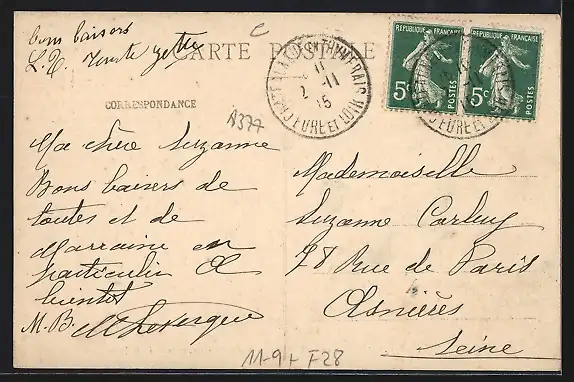 bons baisers
CARTE POSTALE
CORRESPONDANCE
A377
Ma chère Suzanne
Bons baisers de
toutes et de
Marraine en
particulier A
bientôt
M.B.
2 - 11
15
EURE ET LOIR
REPUBLIQUE FRANÇAISE
5c POSTES
REPUBLIQUE FRANÇAISE
5c POSTES
Mademoiselle
Suzanne
78 Rue de Paris
Asnières
Seine
11-9 + F28